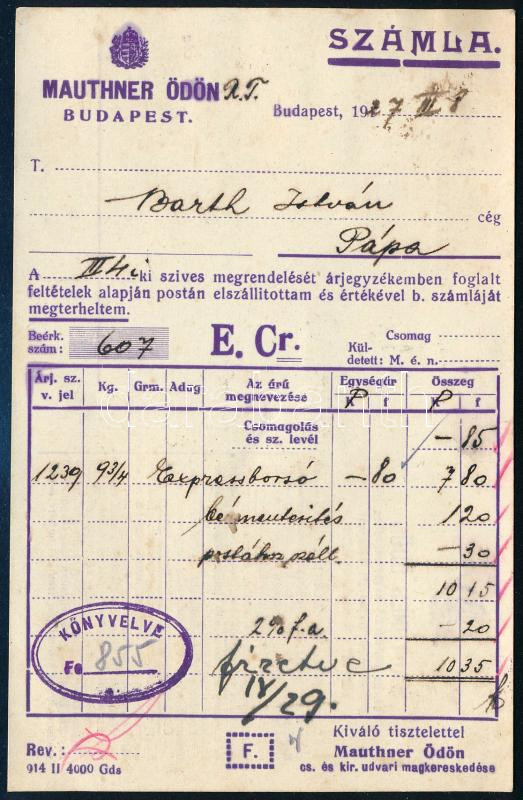 SZÁMLA.
MAUTHNER ÖDÖN R.T.
BUDAPEST.
Budapest, 1927 III 8
T.
Barth István
cég
Pápa
A III 4i ki szives megrendelését árjegyzékemben foglalt
feltételek alapján postán elszállitottam és értékével b. számláját
megterheltem.
Beérk. szám: 607
E. Cr.
Csomag
Küldetett: M. é. n.
Árj. sz. v. jel Kg. Grm. Adag Az árú megnevezése Egységár Összeg
P f P f
Csomagolás és sz. levél — 85
1239 9 3/4 Expressborsó — 80 7 80
bérmentesités 1 20
postához száll. — 30
10 15
2% f.a. — 20
fizetve 10 35
IV/29.
KÖNYVELVE
Fo 855
Rev.:
914 II 4000 Gds
F.
Kiváló tisztelettel
Mauthner Ödön
cs. és kir. udvari magkereskedése
darabanth